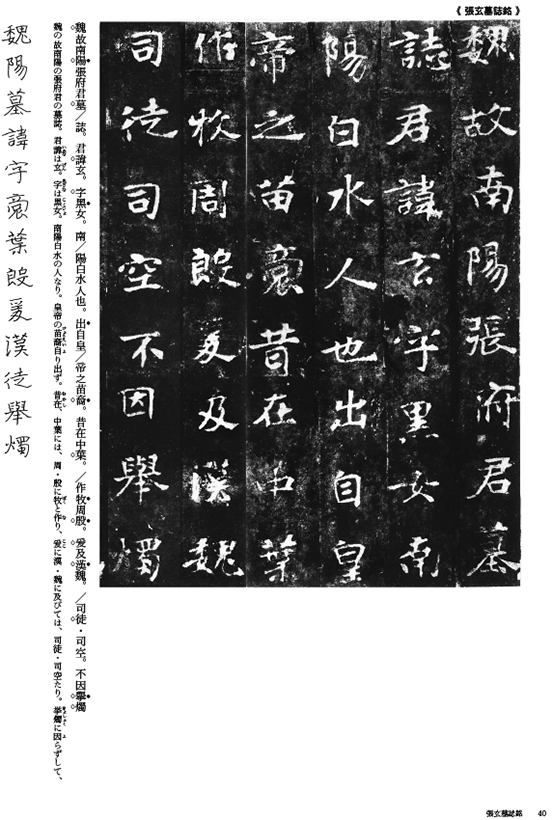 《張玄墓誌銘》
魏故南陽張府君墓
誌君諱玄字黑女南
陽白水人也出自皇
帝之苗裔昔在中葉
作牧周殷爰及漢魏
司徒司空不因舉燭
魏故南陽張府君墓／誌。君諱玄。字黑女。南／陽白水人也。出自皇／帝之苗裔。昔在中葉。／作牧周殷。爰及漢魏。／司徒・司空。不因舉燭
魏の故南陽の張府君の墓誌。君諱は玄。字は黒女。南陽白水の人なり。皇帝の苗裔自り出ず。昔在、中葉には、周・殷に牧と作り、爰に漢・魏に及びては、司徒・司空たり。挙燭に因らずして、
魏陽墓諱字裔葉殷爰漢徒舉燭
張玄墓誌銘 40